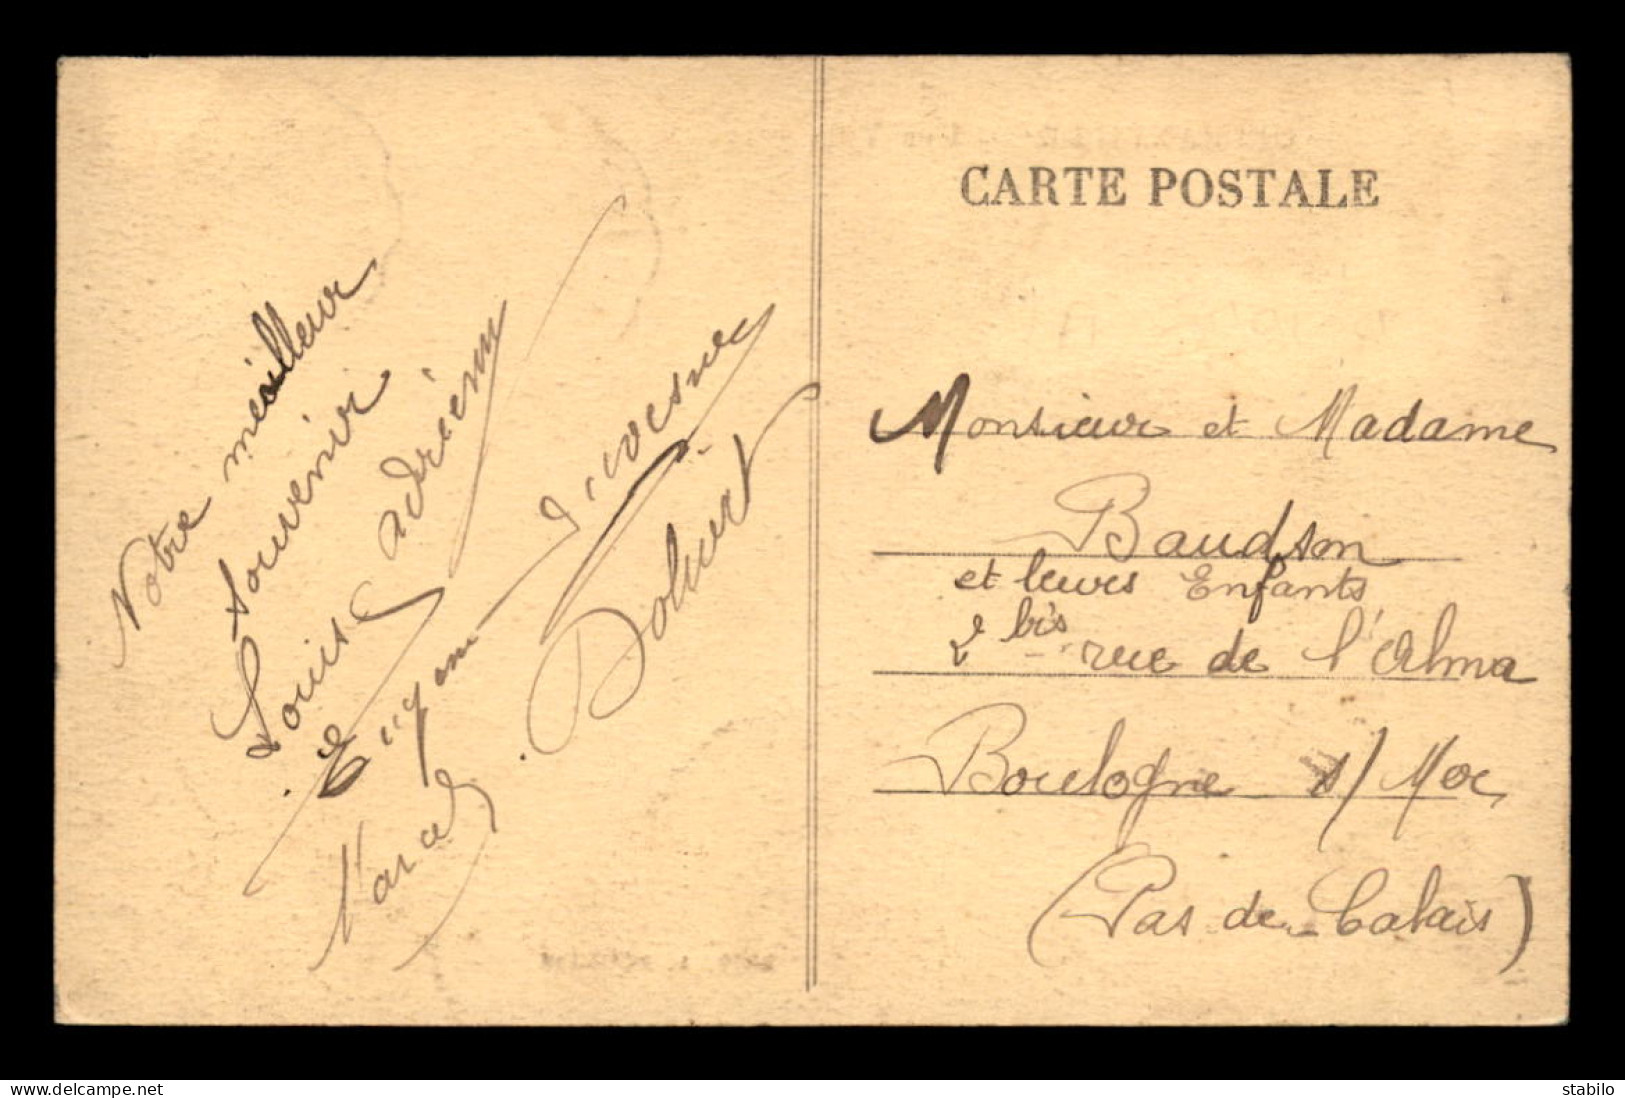 CARTE POSTALE
Notre meilleur
souvenir
Louise Adrienne
Eugène
Marcel
Monsieur et Madame
Baudson
et leurs Enfants
2 bis rue de l'Alma
Boulogne s/ Mer
(Pas de Calais)
www.delcampe.net
stabilo